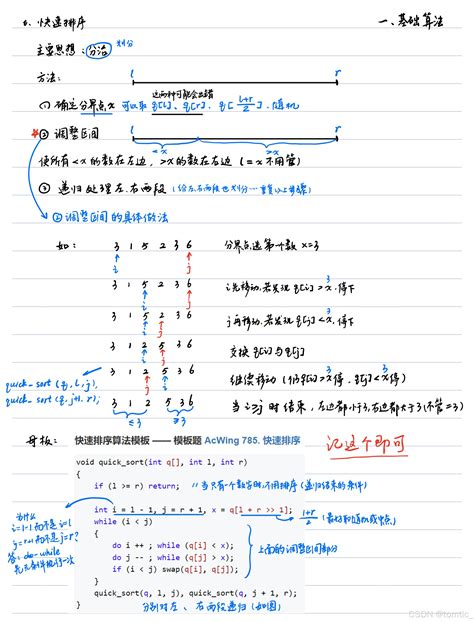 0. 快速排序
一、基础算法
主要思想:分治 划分
方法:
l r
这两种可能会出错
(1) 确定分界点x 可以取 q[l]、q[r]、q[(l+r)/2]、随机
② 调整区间
l r
≤x ≥x
使所有<x的数在左边,>x的数在右边(=x不用管)
③ 递归处理左、右两段(给左、右两段也划分…重复以上步骤)
②调整区间的具体做法
如: 3 1 5 2 3 6 分界点选第一个数 x=3
i j
3 1 5 2 3 6 i先移动,若发现 q[i] > x,停下
3
i j
3 1 5 2 3 6 j再移动,若发现 q[j] < x,停下
3
i j
3 1 2 5 3 6 交换 q[i]与q[j]
i j
3 1 2 5 3 6 继续移动(仍 q[i]>x停,q[j]<x停)
3 3
j i
quick_sort (q, l, j);
quick_sort (q, j+1, r);
3 1 2 5 3 6 当 i≥j 时结束,左边都小于3,右边都大于3(不管=3)
≤3 ≥3
母板:
快速排序算法模板 —— 模板题 AcWing 785. 快速排序
记这个即可
void quick_sort(int q[], int l, int r)
{
if (l >= r) return; //当只有一个数字时,不用排序(递归结束的条件)
int i = l - 1, j = r + 1, x = q[l + r >> 1];
(l+r)/2
while (i < j)
{
do i ++ ; while (q[i] < x);
do j -- ; while (q[j] > x);
if (i < j) swap(q[i], q[j]);
}
上面的调整区间部分
quick_sort(q, l, j), quick_sort(q, j + 1, r);
}
分别对左、右两段递归(如图)
为什么
i=l-1而不是i=l
j=r+1而不是j=r?
答:do-while
CSDN @tomtic_